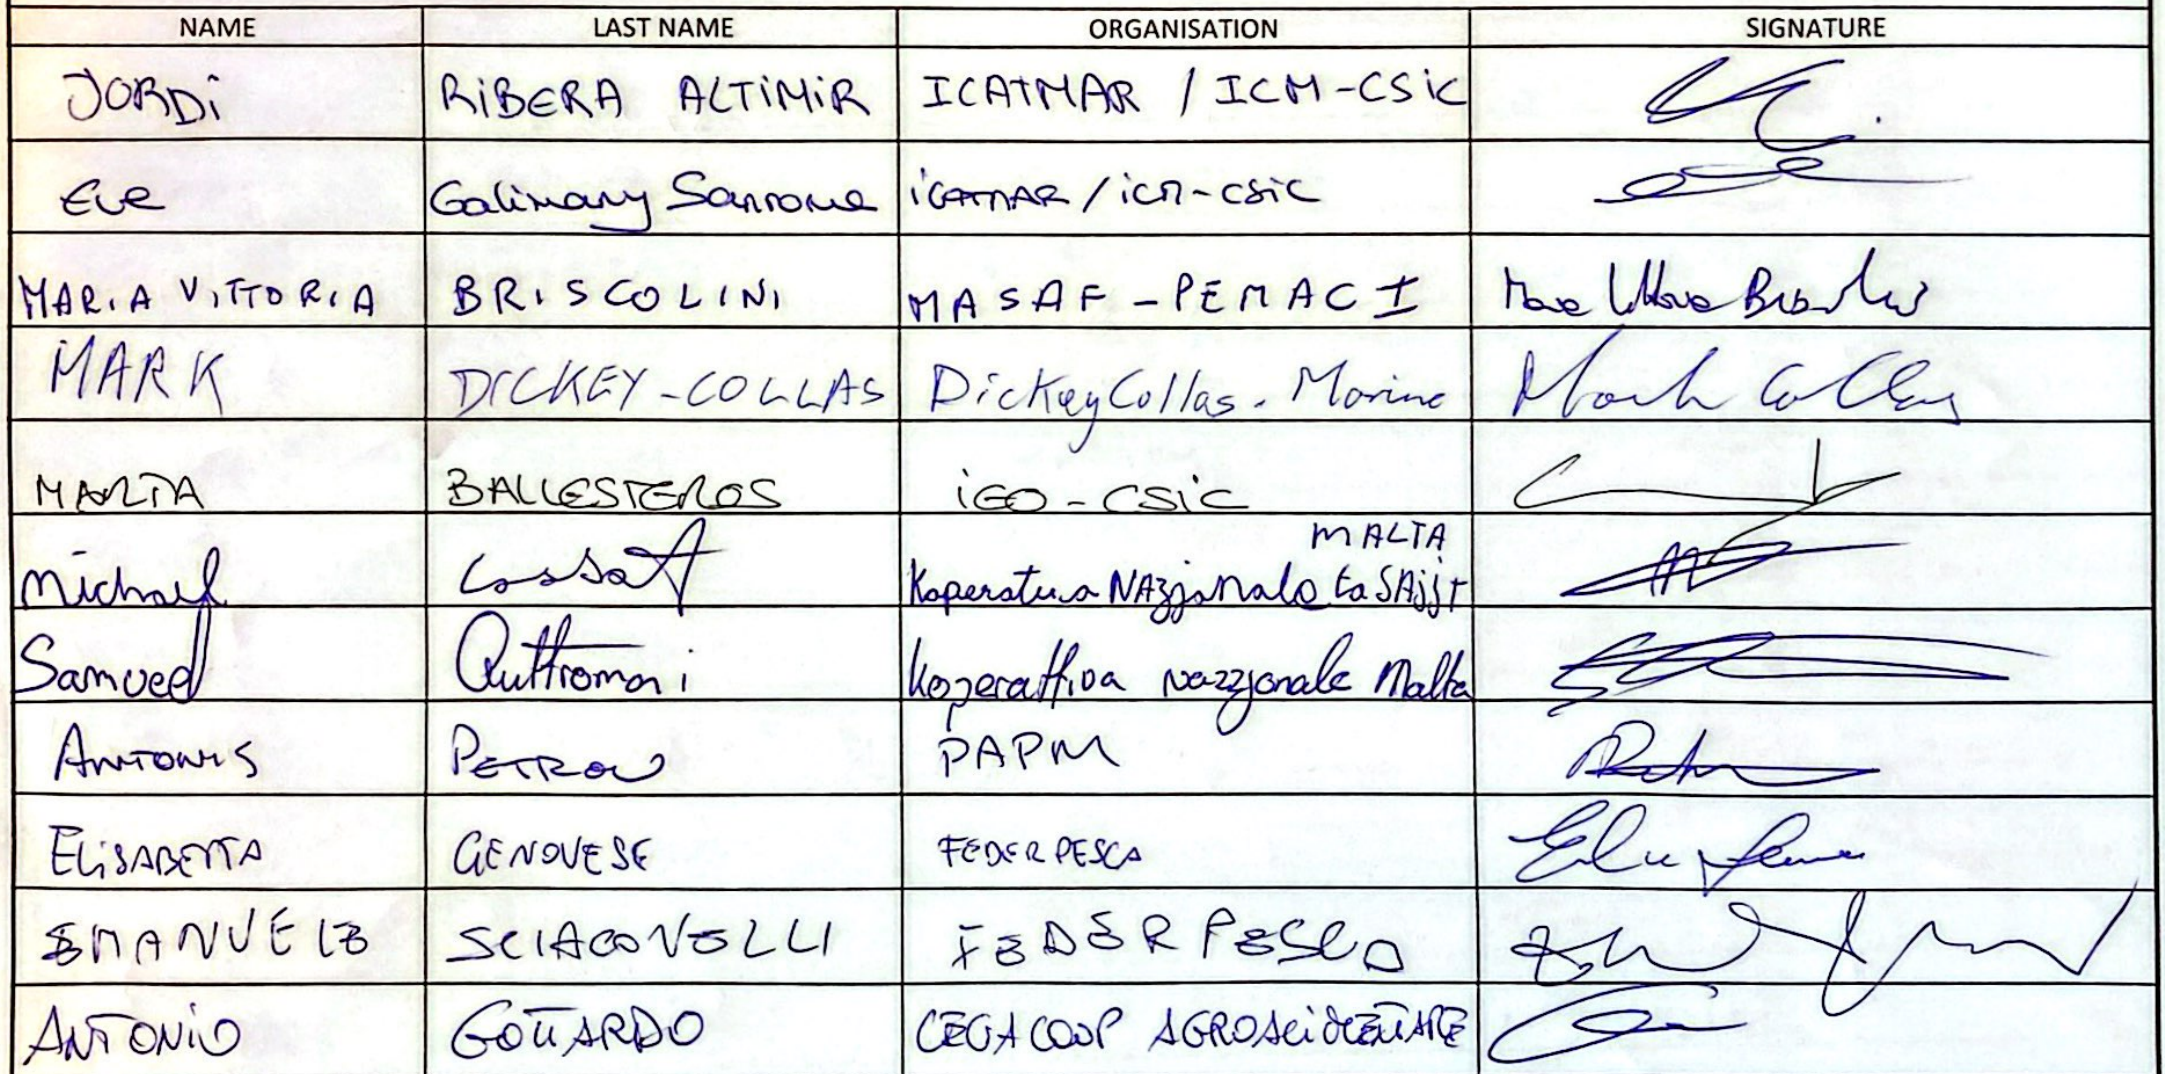 NAME LAST NAME ORGANISATION SIGNATURE
JORDi RiBERA ALTiMiR ICATMAR / ICM-CSiC
Eve Galimany Sanroma iCATMAR / iCM-CSiC
MARIA VITTORIA BRISCOLINI MASAF - PEMAC I
MARK DICKEY-COLLAS DickeyCollas. Marine
MARTA BALLESTEROS iEO - CSiC
MALTA
Michael Cossa Koperativa NAzzjonala ta SAjjt
Samuel Quttromani Koperattiva nazzjonale Malta
Antonis Petrou PAPM
ELiSABETTA GENOVESE FEDERPESCA
EMANUELE SCIACOVELLI FEDERPESCA
ANTONiO GOTTARDO LEGACOOP AGROALiMENTARE